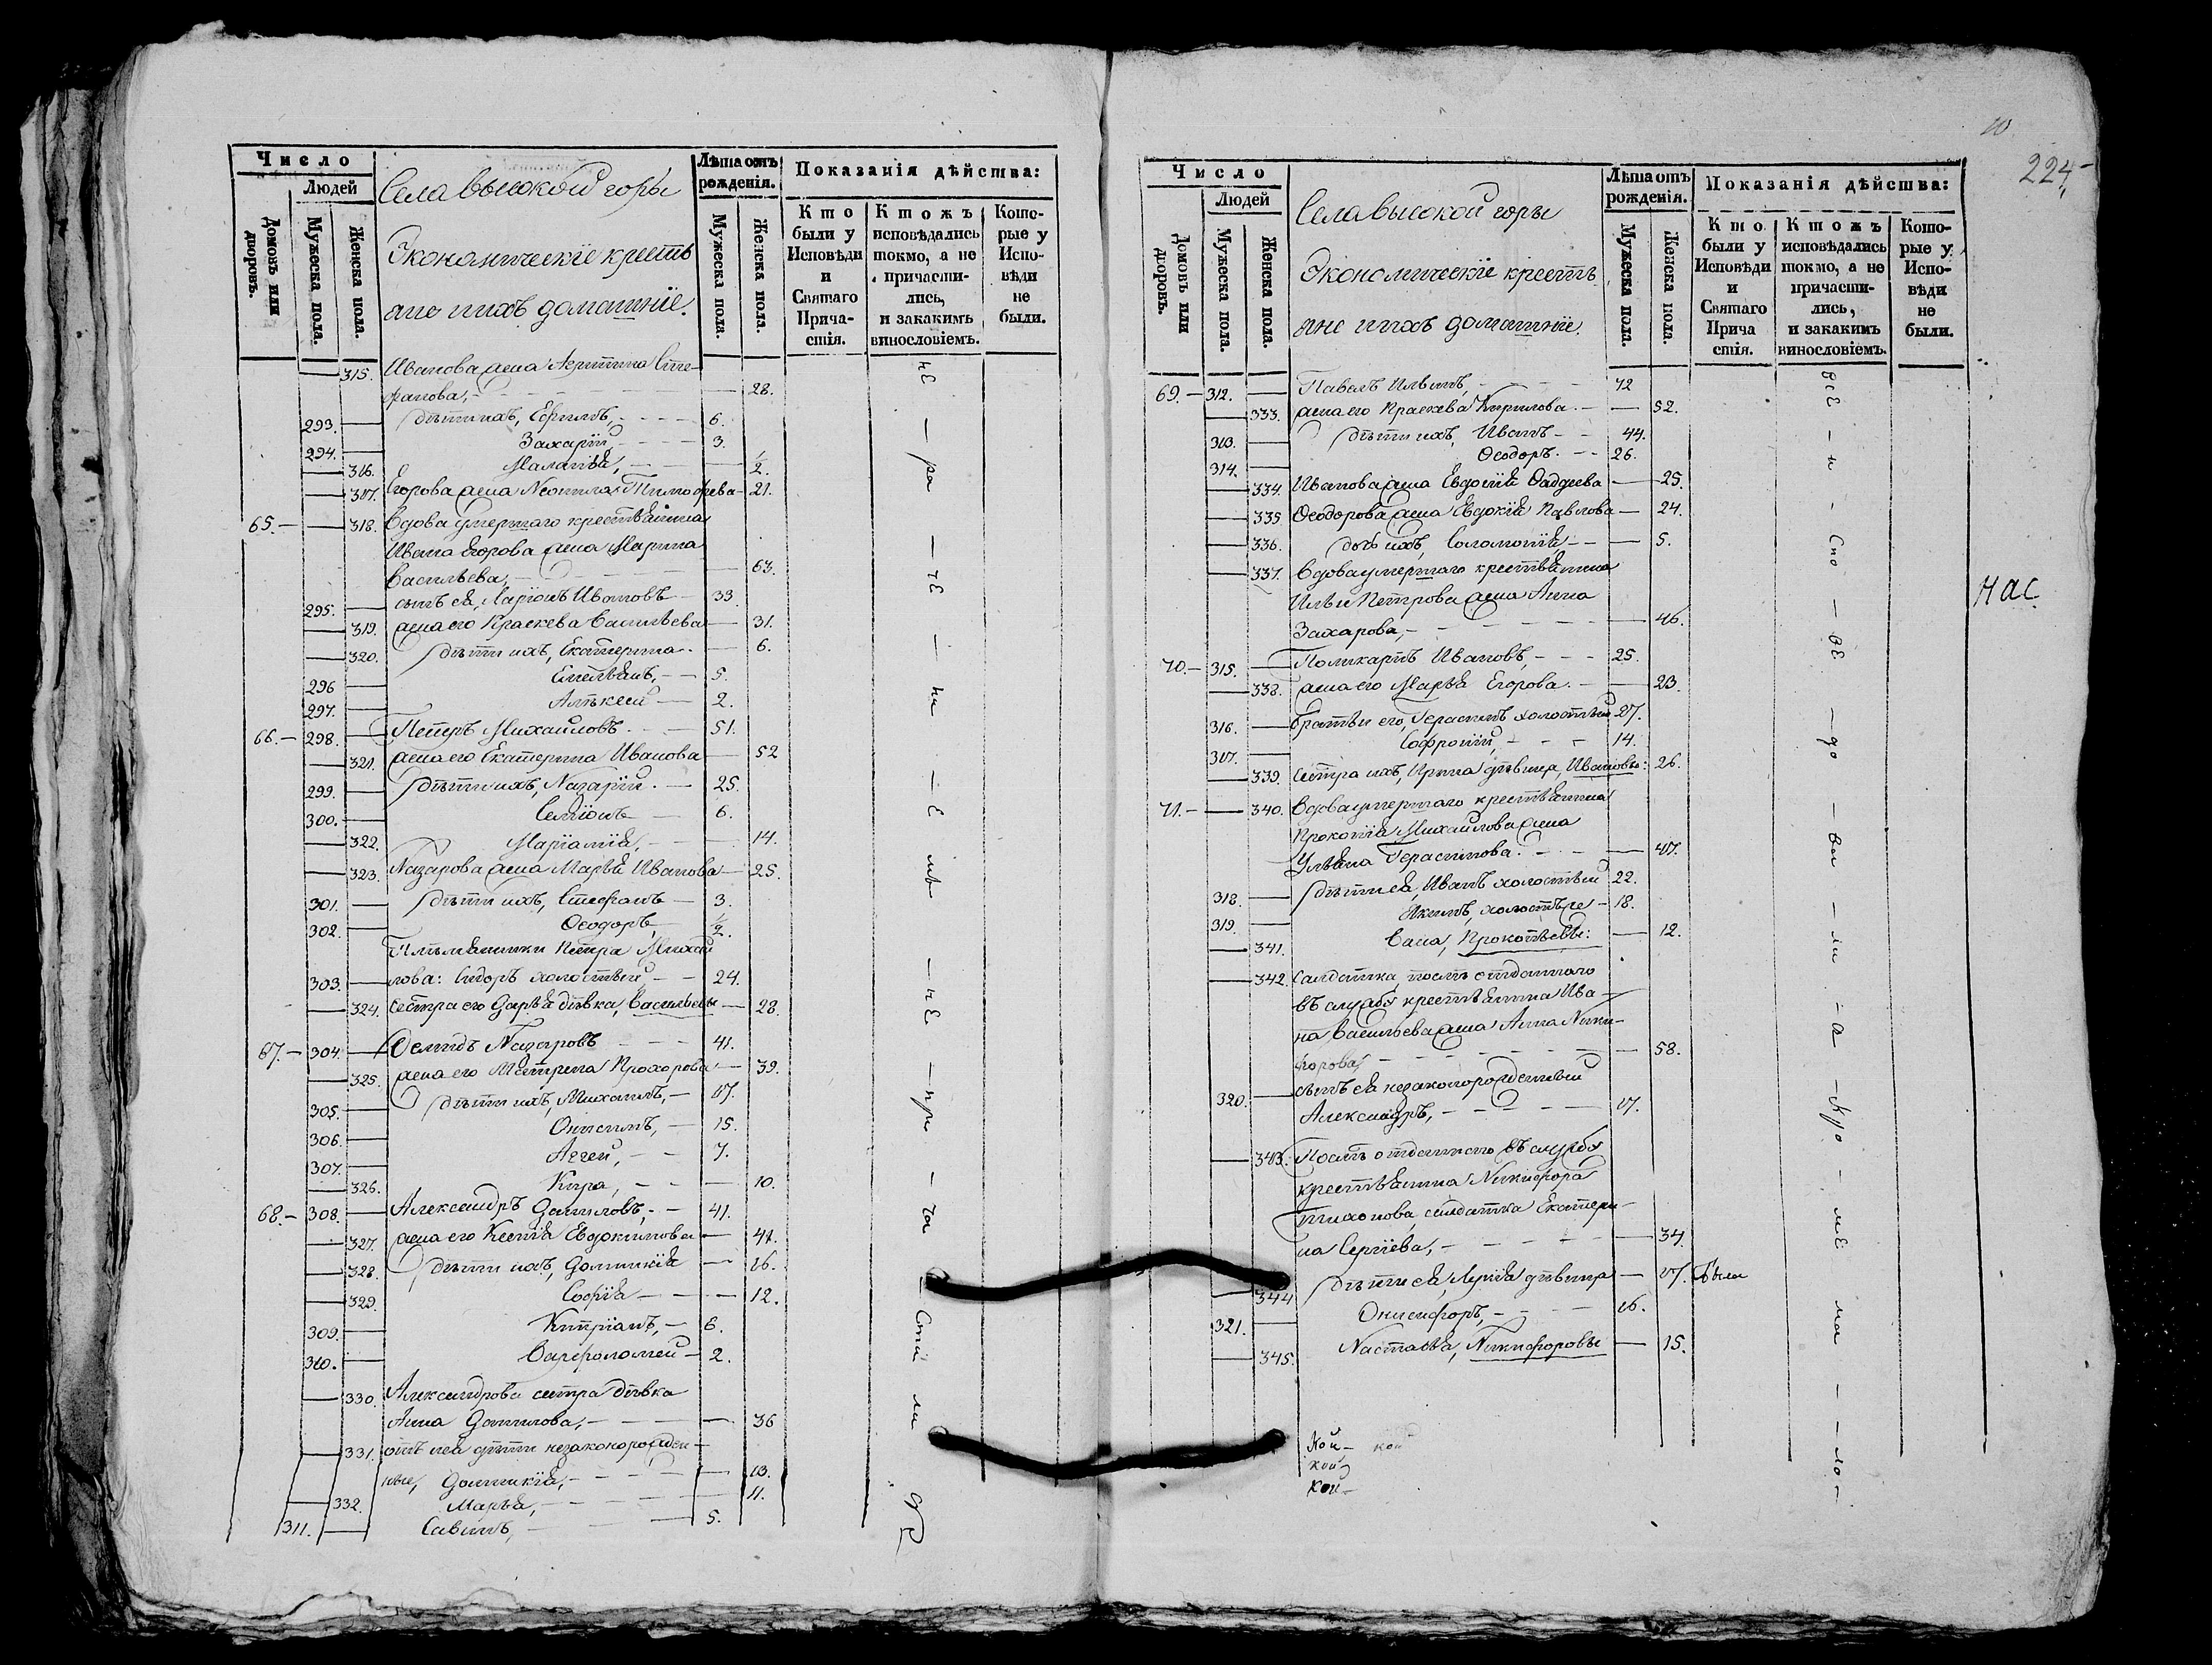 Число
Людей
Домовъ или дворовъ.
Мужеска пола.
Женска пола.
Села высокой горы
Экономическiе кресть
яне иихъ домашнiе.
Лѣта отъ рожденiя.
Мужеска пола.
Женска пола.
Показанiя дѣйства:
Кто были у Исповѣди и Святаго Причастiя.
Ктожъ исповѣдались токмо, а не причастились, и закакимъ винословiемъ.
Которые у Исповѣди не были.
315. Иванова жена Сте-
фанова, 28.
293. дѣти ихъ, 6.
294. Захарiй, 3.
316. Маланiя, 1/2.
317. Егорова жена Неонила Тимофеева 21.
65. 318. Вдова умершаго крестьянина
Ивана Егорова жена Марина
Васильева, 63.
295. сынъ ея, Ларiонъ Ивановъ 33
319. жена его Праскева Васильева 31.
320. дѣти ихъ, Екатерина. 6.
296 Емельянъ, 5.
297. Алѣксей 2.
66. 298. Петръ Михайловъ 51.
321. жена его Екатерина Иванова 52
299. дѣти ихъ, Назарiй. 25.
300. Семiонъ 6.
322. Марiамiя, 14.
323. Назарова жена Марья Иванова 25.
301. дѣти ихъ, Стефанъ 3.
302. Ѳеодоръ, 1/2.
Плѣмянники Петра Михай
303. лова: Сидоръ холостый, 24.
324. сестра его Дарья дѣвка, Васильевы 28.
67. 304. Назаровъ 41.
325. жена его Матрена Прохорова 39.
305. дѣти ихъ, Михаилъ, 17.
306. Онисимъ, 15.
307. Аггей, 7.
326. Кира, 10.
68. 308. Александръ Даниловъ, 41.
327. жена его Ксенiя Евдокимова 41.
328. дѣти ихъ, Домникiя 16.
329. Софiя 12.
309. Кипрiанъ, 6.
310. Варфоломей 2.
330. Александрова сестра дѣвка
Анна Данилова, 36
331. отъ нея дѣти незаконорожден-
ные, Домникiя, 13.
332. Марья, 11.
311. Савинъ, 5.
не — ра — че — ни — е мъ — не — при — ча — сти ли

10
224
Число
Людей
Домовъ или дворовъ.
Мужеска пола.
Женска пола.
Села высокой горы
Экономическiе кресть
яне иихъ домашнiе.
Лѣта отъ рожденiя.
Мужеска пола.
Женска пола.
Показанiя дѣйства:
Кто были у Исповѣди и Святаго Причастiя.
Ктожъ исповѣдались токмо, а не причастились, и закакимъ винословiемъ.
Которые у Исповѣди не были.
69. 312. Павелъ Ильинъ, 72
333. жена его Праскева Кирилова. 52.
313. дѣти ихъ, Иванъ 44.
314. Ѳеодоръ. 26.
334. Иванова жена Евдокiя Ѳаддеева 25.
335 Ѳеодорова жена Евдокiя Павлова 24.
336. дочь ихъ, Соломонiя, 5.
337. Вдова умершаго крестьянина
Ильи Петрова жена Анна
Захарова, 46.
70. 315. Поликарпъ Ивановъ, 25.
338. жена его Марья Егорова. 23.
316. братьи его, Герасимъ холостый 27.
317. Софронiй, 14.
339. сестра ихъ, Ирина дѣвица, Ивановы: 26.
71. 340. Вдова умершаго крестьянина
Прокопiя Михайлова жена
Ульяна Герасимова. 47.
318. дѣти ея, Иванъ холостый 22.
319. Якимъ, 18.
341. Прокопьевы: 12.
342. Салдатка, послѣ отданнаго
въ службу крестьянина Ива
на Васильева жена Анна Ники-
форова, 58.
320. сынъ ея незаконорожденный
Александръ, 17.
343. Послѣ отданнаго въ службу
крестьянина Никифора
Тихонова салдатка Екатери-
на Сергiева, 34.
344 дѣти ея, дѣвица 17. Была
321. Онисифоръ, 16.
345. Настасья, Никифоровы 15.
все — и — спо — ве — до — ва — ли — а — кро — ме ма — ло
нас
кой кой
кой
кой